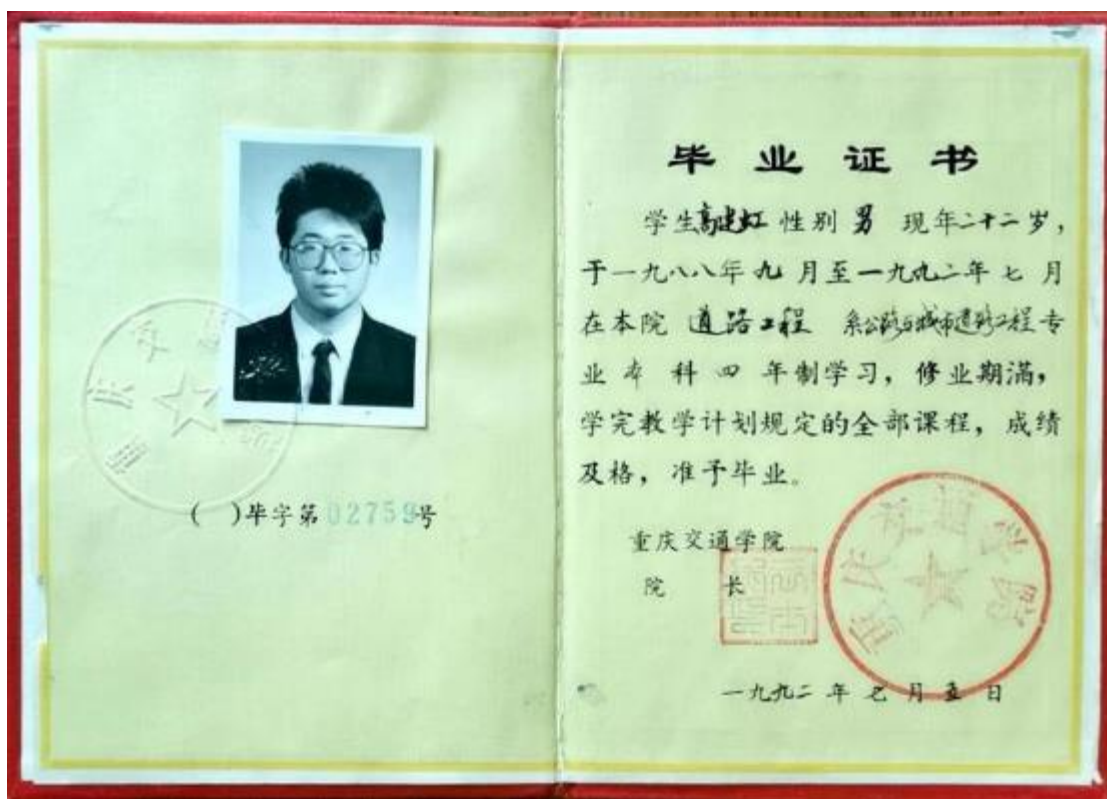 ()毕字第02759号
毕业证书
学生高建虹性别 男 现年二十二岁,
于一九八八年九月至一九九二年七月
在本院 道路工程 系公路与城市道路工程专
业 本 科 四 年制学习, 修业期满,
学完教学计划规定的全部课程, 成绩
及格, 准予毕业。
重庆交通学院
院 长
重庆交通学院
一九九二年七月五日